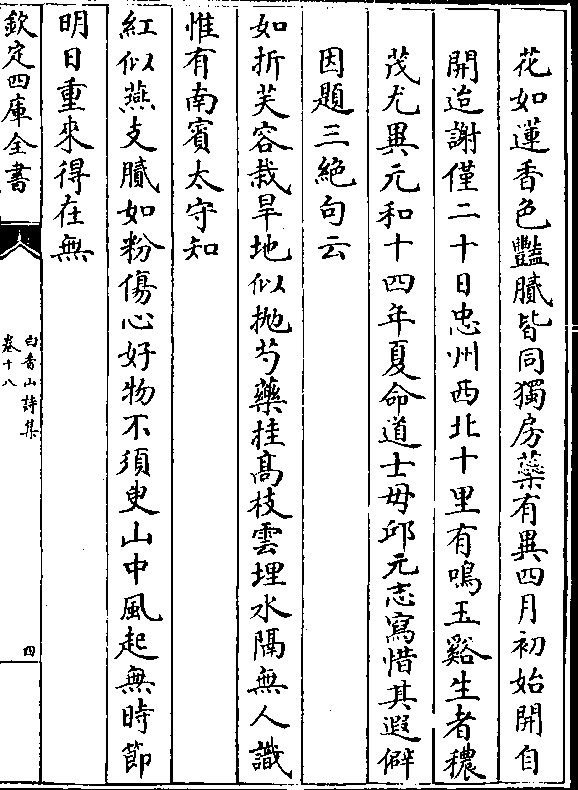 花如蓮香色豔膩皆同獨房蘂有異四月初始開自
開迨謝僅二十日忠州西北十里有鳴玉谿生者穠
茂尤異元和十四年夏命道士毋邱元志寫惜其遐僻
因題三絶句云
如折芙容栽旱地似抛芍藥挂髙枝雲埋水隔無人識
惟有南賔太守知
紅似燕支膩如粉傷心好物不須臾山中風起無時節
明日重來得在無
欽定四庫全書
白香山詩集
卷十八
四